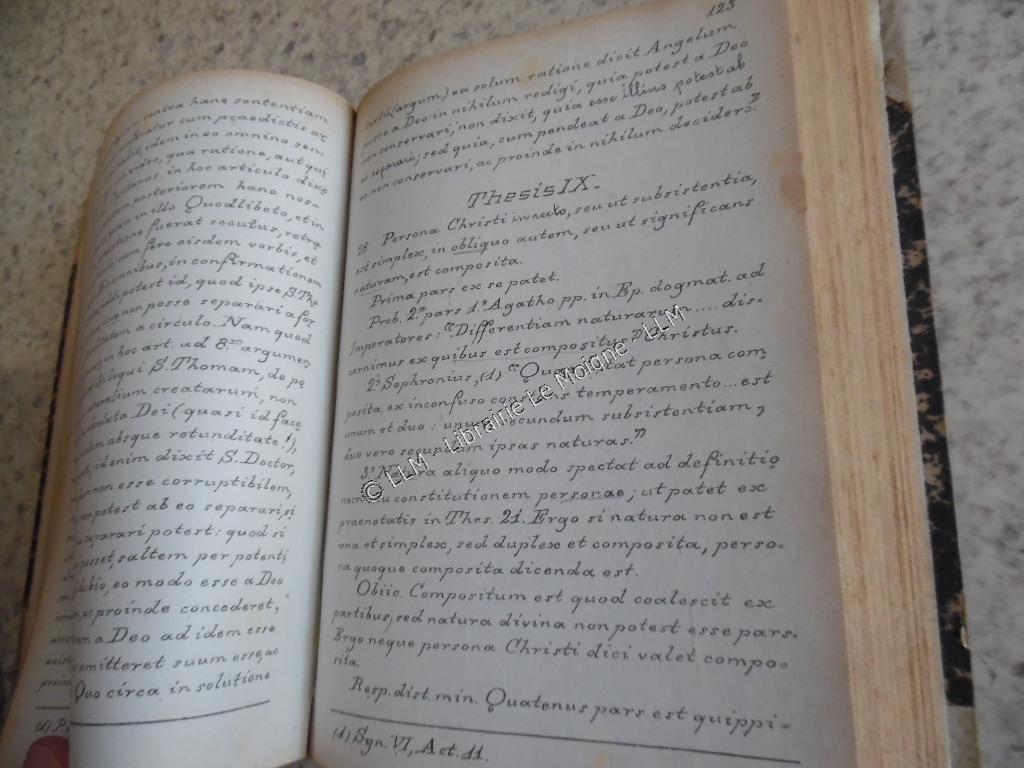 contra hanc sententiam
cum praedictis ac
idem in eo omnino sen-
qua ratione, aut qui
in hoc articulo dixe
posteriorem hanc nos-
in illo Quodlibeto, et in
fuerat secutus, retra
fere eisdem verbis, et
in confirmationem
potest id, quod ipse, S. Tho
non posse separari a for
a circulo. Nam quod
in hoc art. ad 8.um argumen
loqui S. Thomam, de po
creatarum, non
Dei (quasi id face
absque rotunditate!),
enim dixit S. Doctor,
non esse corruptibilem,
potest ab eo separari, si
separari potest: quod si
posset, saltem per potenti
eo modo esse a Deo
ac proinde concederet,
a Deo ad idem esse
amitteret suum esse, ac
Quo circa in solutione
123
(argum) ea solum ratione dicit Angelum
posse a Deo in nihilum redigi, quia potest a Deo
non conservari, non dixit, quia esse illius potest ab
eo separari; sed quia, cum pendeat a Deo, potest ab
eo non conservari, ac proinde in nihilum decidere."
Thesis IX.
28 Persona Christi in recto, seu ut subsistentia,
est simplex, in obliquo autem, seu ut significans
naturam, est composita.
Prima pars ex se patet.
Prob. 2ª pars 1º Agatho pp. in Ep. dogmat. ad
Imperatores: "Differentiam naturarum.... dis-
cernimus ex quibus est compositus" Christus.
2º Sophronius, (1) "persona com
posita, ex inconfuso temperamento... est
unum et duo: unum secundum subsistentiam,
duo vero secundum ipsas naturas."
3º Natura aliquo modo spectat ad definitio
nem, seu constitutionem personae; ut patet ex
praenotatis in Thes. 21. Ergo si natura non est
una et simplex, sed duplex et composita, perso-
na quoque composita dicenda est.
Obiic. Compositum est quod coalescit ex
partibus, sed natura divina non potest esse pars.
Ergo neque persona Christi dici valet compo-
sita.
Resp. dist. min. Quatenus pars est quippi-
(1) Syn. VI, Act. 11.
© LLM - Librairie Le Moigne - LLM